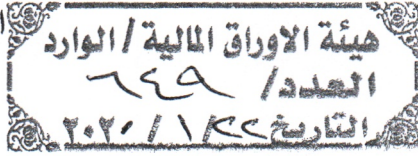 هيئة الاوراق المالية / الوارد
العدد/ ٦٤٩
التاريخ ٢٢/ ١ / ٢٠٢٠